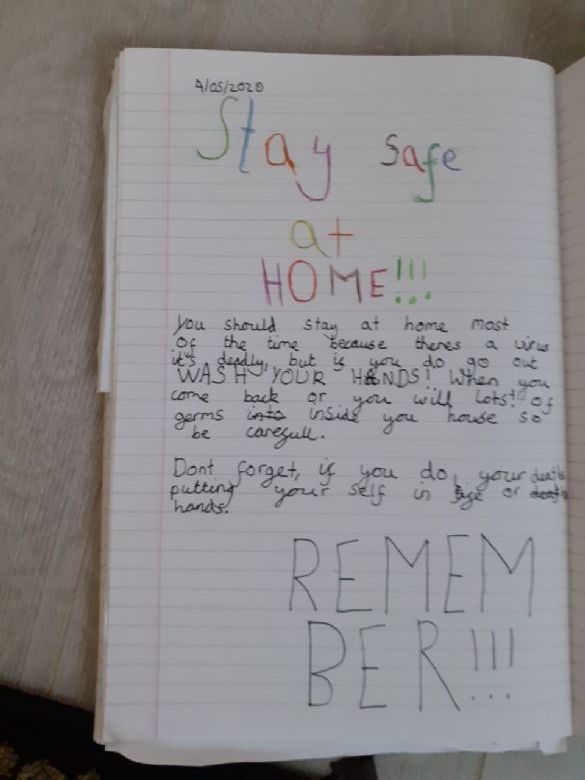 4/05/2020
Stay safe
at
HOME!!!
You should stay at home most
of the time because theres a virus
it's deadly, but if you do go out
WASH YOUR HANDS! When you
come back or you will lots! of
germs into inside you house so
be carefull.
Dont forget, if you do, your
putting your self in or
hands.
REMEM
BER!!!